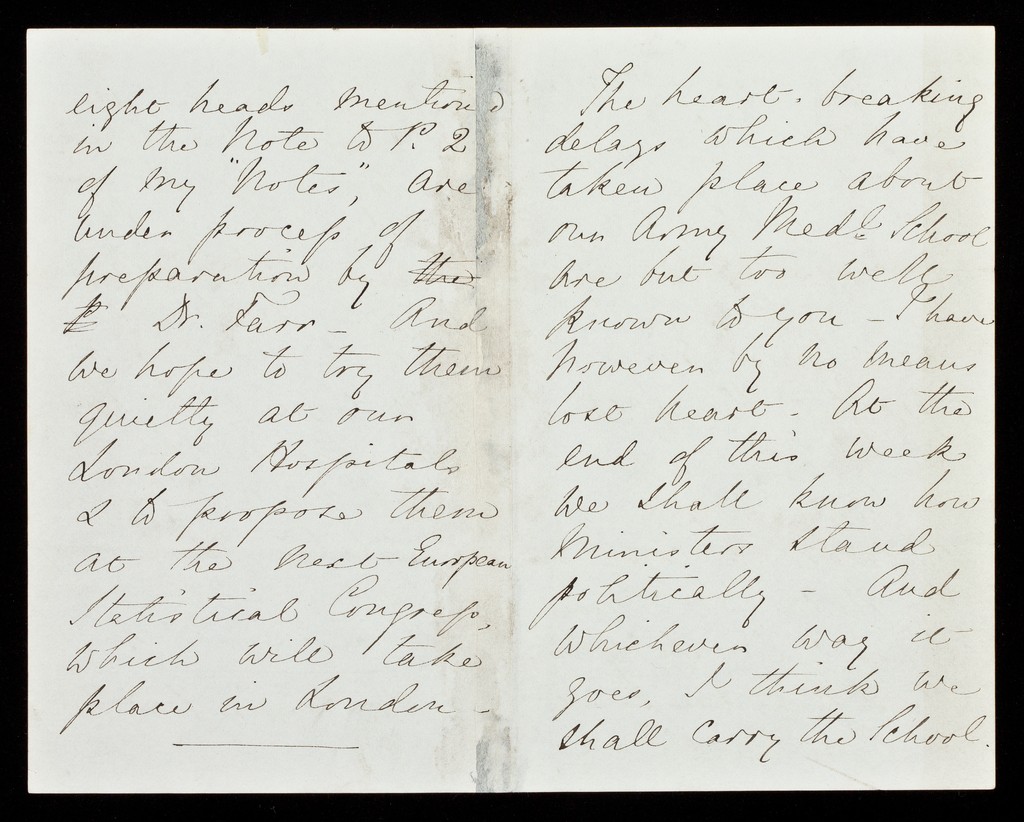 eight heads mentioned
in the Note to P. 2
of my "Notes", are
under process of
preparation by the
Dr. Farr – And
we hope to try them
quietly at our
London Hospitals
& to propose them
at the next European
Statistical Congress,
which will take
place in London –
The heart-breaking
delays which have
taken place about
our Army Medl. School
are but too well
known to you – I have
however by no means
lost heart – At the
end of this week
we shall know how
Ministers stand
politically – And
whichever way it
goes, I think we
shall carry the School.